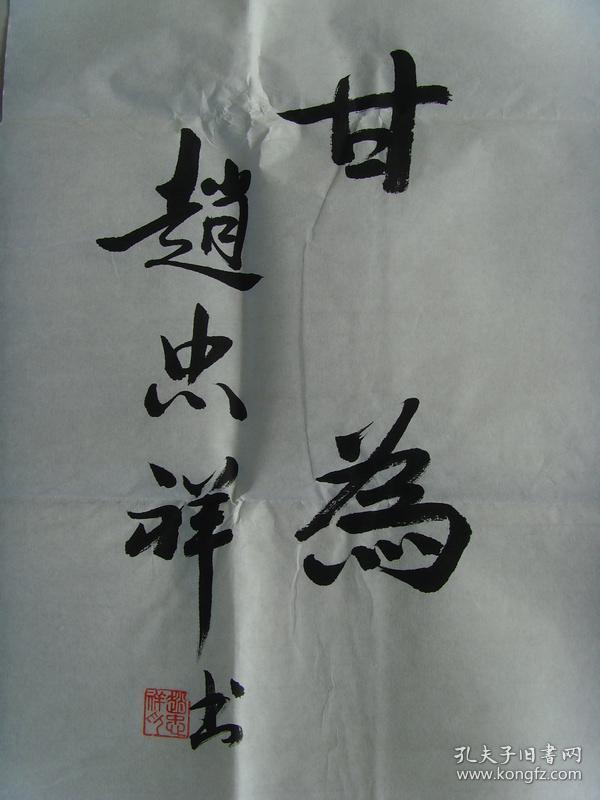 甘為
趙忠祥书
趙忠祥
孔夫子旧書网
www.kongfz.com